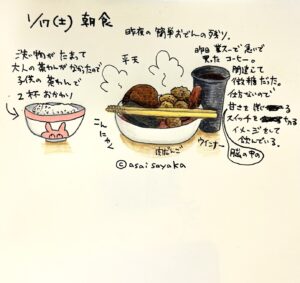 1/17(土) 朝食
昨夜の簡単おでんの残り。
洗い物がたまって
大人の茶わんがなかったので
子供の茶わんで
2杯おかわり
平天
こんにゃく
肉だんご
ウインナー
昨日業スーで急いで
買ったコーヒー。
間違して
微糖だった。
仕方ないので
甘さを感じる
スイッチを切る
イメージをして
飲んでいる。
脳の中の
©asaisayaka